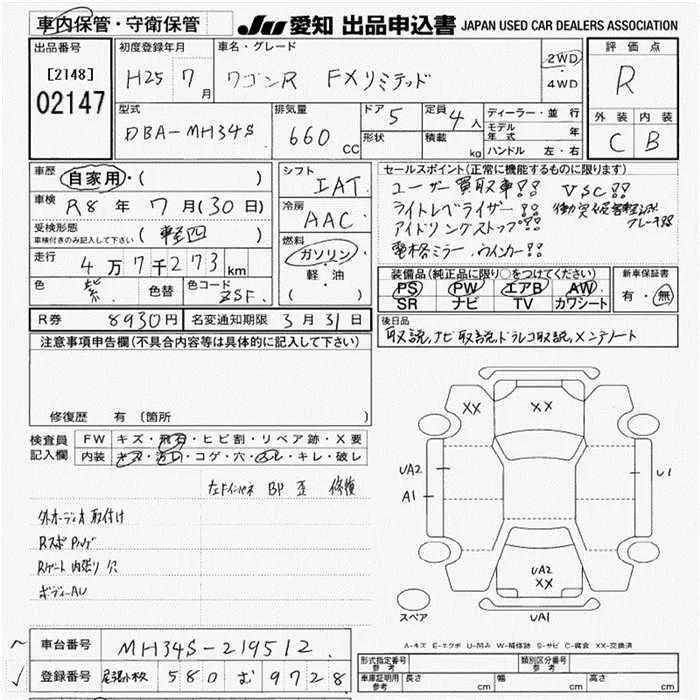 車内保管・守衛保管
JU 愛知 出品申込書 JAPAN USED CAR DEALERS ASSOCIATION
出品番号
[2148]
02147
初度登録年月
H25 7月
車名・グレード
ワゴンR FXリミテッド
2WD
・
4WD
評価点
R
外装 内装
C B
型式
DBA-MH34S
排気量
660 CC
ドア 5
形状
定員 4人
積載 kg
ディーラー・並行
モデル年式 年
ハンドル 左・右
車歴 自家用・( )
車検 R8年 7月(30日)
受検形態
車検付きのみ記入して下さい (軽四)
走行 4万7千273km
色 紫 色替 色コード ZSF
シフト
IAT
冷房
AAC
燃料
ガソリン
・
軽・油
( )
セールスポイント(正常に機能するものに限ります)
ユーザー買取車!! VSC!!
ライトレベライザー!!
アイドリングストップ!!
電格ミラー、ウインカー!!
装備品(純正品に限り○をつけてください)
PS PW エアB AW
SR ナビ TV カワシート
新車保証書
有・無
R券 8930円 名変通知期限 3月31日
後日品
取説,ナビ取説,ドラレコ取説,メンテノート
注意事項申告欄(不具合内容等は具体的に記入して下さい)
修復歴 有 〔箇所
検査員
記入欄
FW キズ・飛石・ヒビ割・リペア跡・X要
内装 キズ・汚れ・コゲ・穴・スレ・キレ・破レ
左Fインパネ BP 歪 修復
外オーディオ取付け
Rゲート内張り穴
XX XX
UA2
A1
U1
UA2
XX
スペア
UA1
A-キズ E-エクボ U-凹み W-補修跡 S-サビ C-腐食 XX-交換済
車台番号 MH34S-219512
登録番号 尾張小牧 580 む 9728
型式指定番号
参考
類別区分番号
参考
車庫証明用
参考
長さ cm 幅 cm 高さ cm